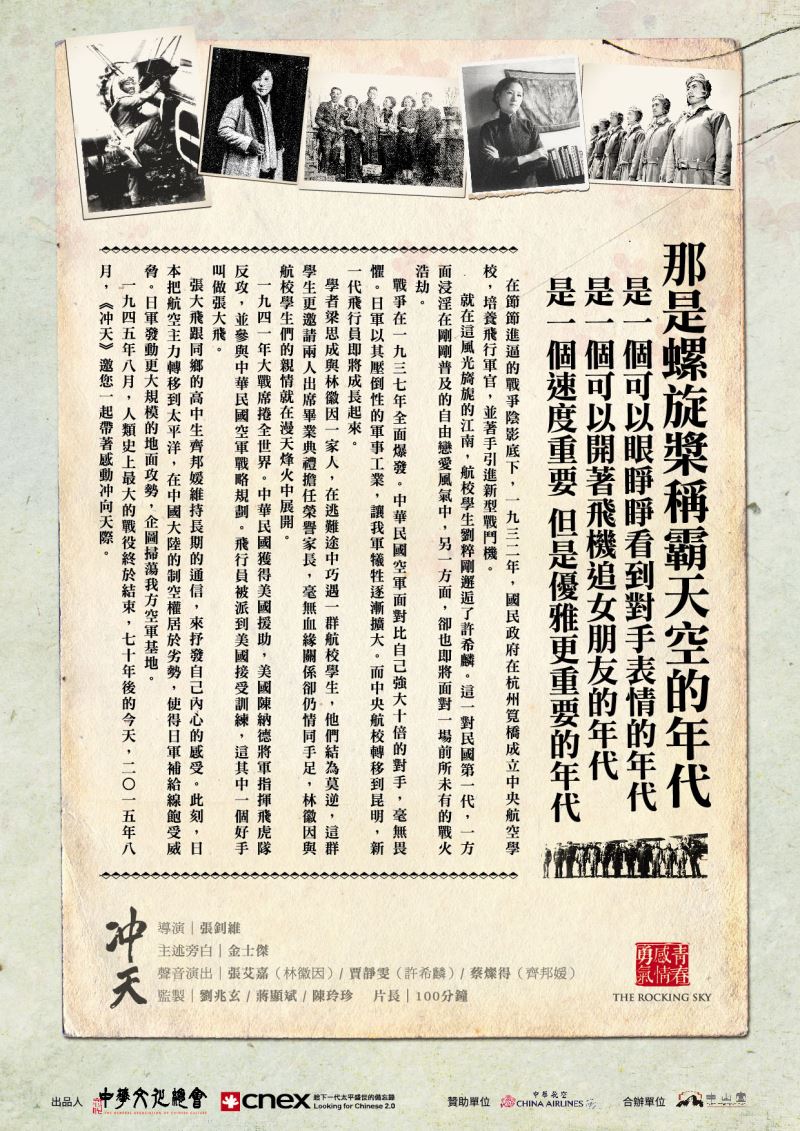 那是螺旋槳稱霸天空的年代
是一個可以眼睜睜看到對手表情的年代
是一個可以開著飛機追女朋友的年代
是一個速度重要 但是優雅更重要的年代
在節節進逼的戰爭陰影底下，一九三二年，國民政府在杭州筧橋成立中央航空學
校，培養飛行軍官，並著手引進新型戰鬥機。
就在這風光旖旎的江南，航校學生劉粹剛邂逅了許希麟。這一對民國第一代，一方
面浸淫在剛剛普及的自由戀愛風氣中，另一方面，卻也即將面對一場前所未有的戰火
浩劫。
戰爭在一九三七年全面爆發。中華民國空軍面對比自己強大十倍的對手，毫無畏
懼。日軍以其壓倒性的軍事工業，讓我軍犧牲逐漸擴大。而中央航校轉移到昆明，新
一代飛行員即將成長起來。
學者梁思成與林徽因一家人，在逃難途中巧遇一群航校學生，他們結為莫逆，這群
學生更邀請兩人出席畢業典禮擔任榮譽家長，毫無血緣關係卻仍情同手足，林徽因與
航校學生們的親情就在漫天烽火中展開。
一九四一年大戰席捲全世界。中華民國獲得美國援助，美國陳納德將軍指揮飛虎隊
反攻，並參與中華民國空軍戰略規劃。飛行員被派到美國接受訓練，這其中一個好手
叫做張大飛。
張大飛跟同鄉的高中生齊邦媛維持長期的通信，來抒發自己內心的感受。此刻，日
本把航空主力轉移到太平洋，在中國大陸的制空權居於劣勢，使得日軍補給線飽受威
脅。日軍發動更大規模的地面攻勢，企圖掃蕩我方空軍基地。
一九四五年八月，人類史上最大的戰役終於結束，七十年後的今天，二〇一五年八
月，《冲天》邀您一起帶著感動冲向天際。
冲天
導演｜張釗維
主述旁白｜金士傑
聲音演出｜張艾嘉（林徽因）/ 賈靜雯（許希麟）/ 蔡燦得（齊邦媛）
監製｜劉兆玄 / 蔣顯斌 / 陳玲珍 片長｜100分鐘
青春
感情
勇氣
THE ROCKING SKY
出品人
中華文化總會
THE GENERAL ASSOCIATION OF CHINESE CULTURE
cnex
給下一代太平盛世的備忘錄
Looking for Chinese 2.0
贊助單位
中華航空
CHINA AIRLINES
合辦單位
中山堂